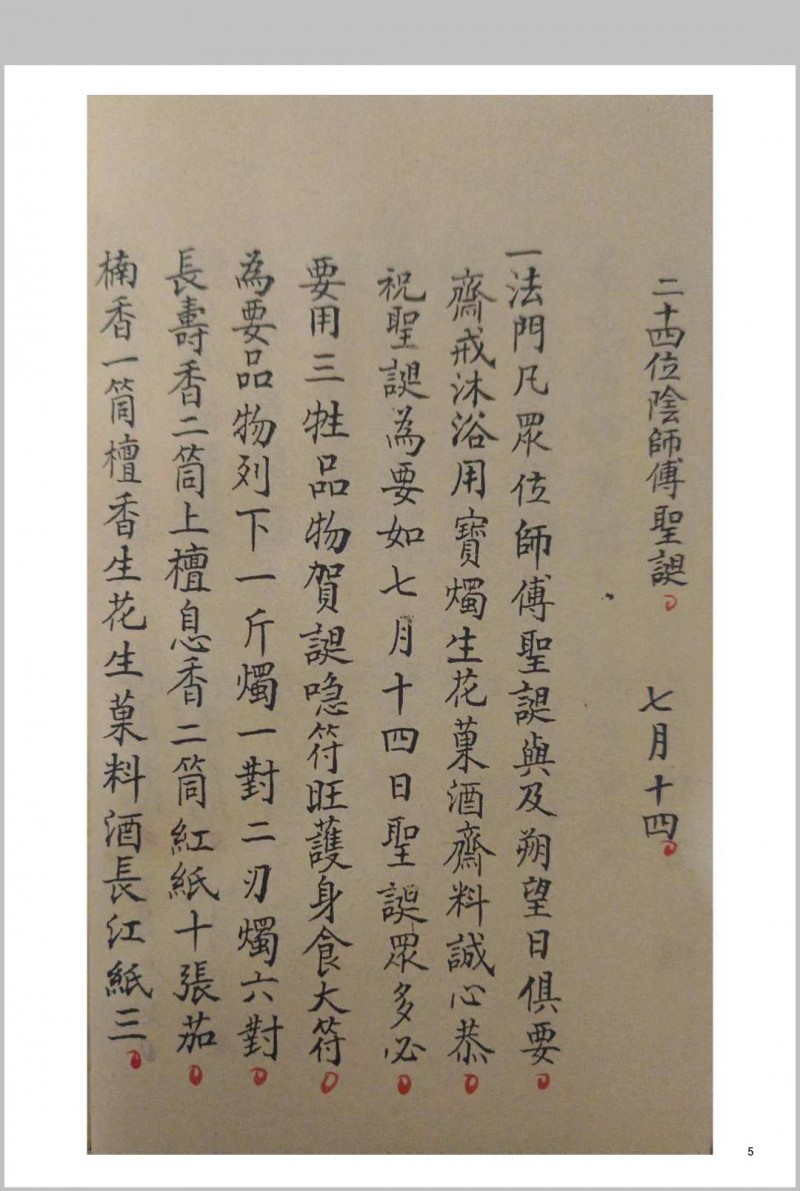 二十四位陰師傅聖誕 七月十四
一法門凡眾位師傅聖誕與及朔望日俱要
齋戒沐浴用寶燭生花菓酒齋料誠心恭
祝聖誕為要如七月十四日聖誕眾多必
要用三牲品物賀誕隐符旺護身食大符
為要品物列下一斤燭一對二刃燭六對
長壽香二筒上檀息香二筒紅紙十張茄
楠香一筒檀香生花生菓料酒長红紙三
5